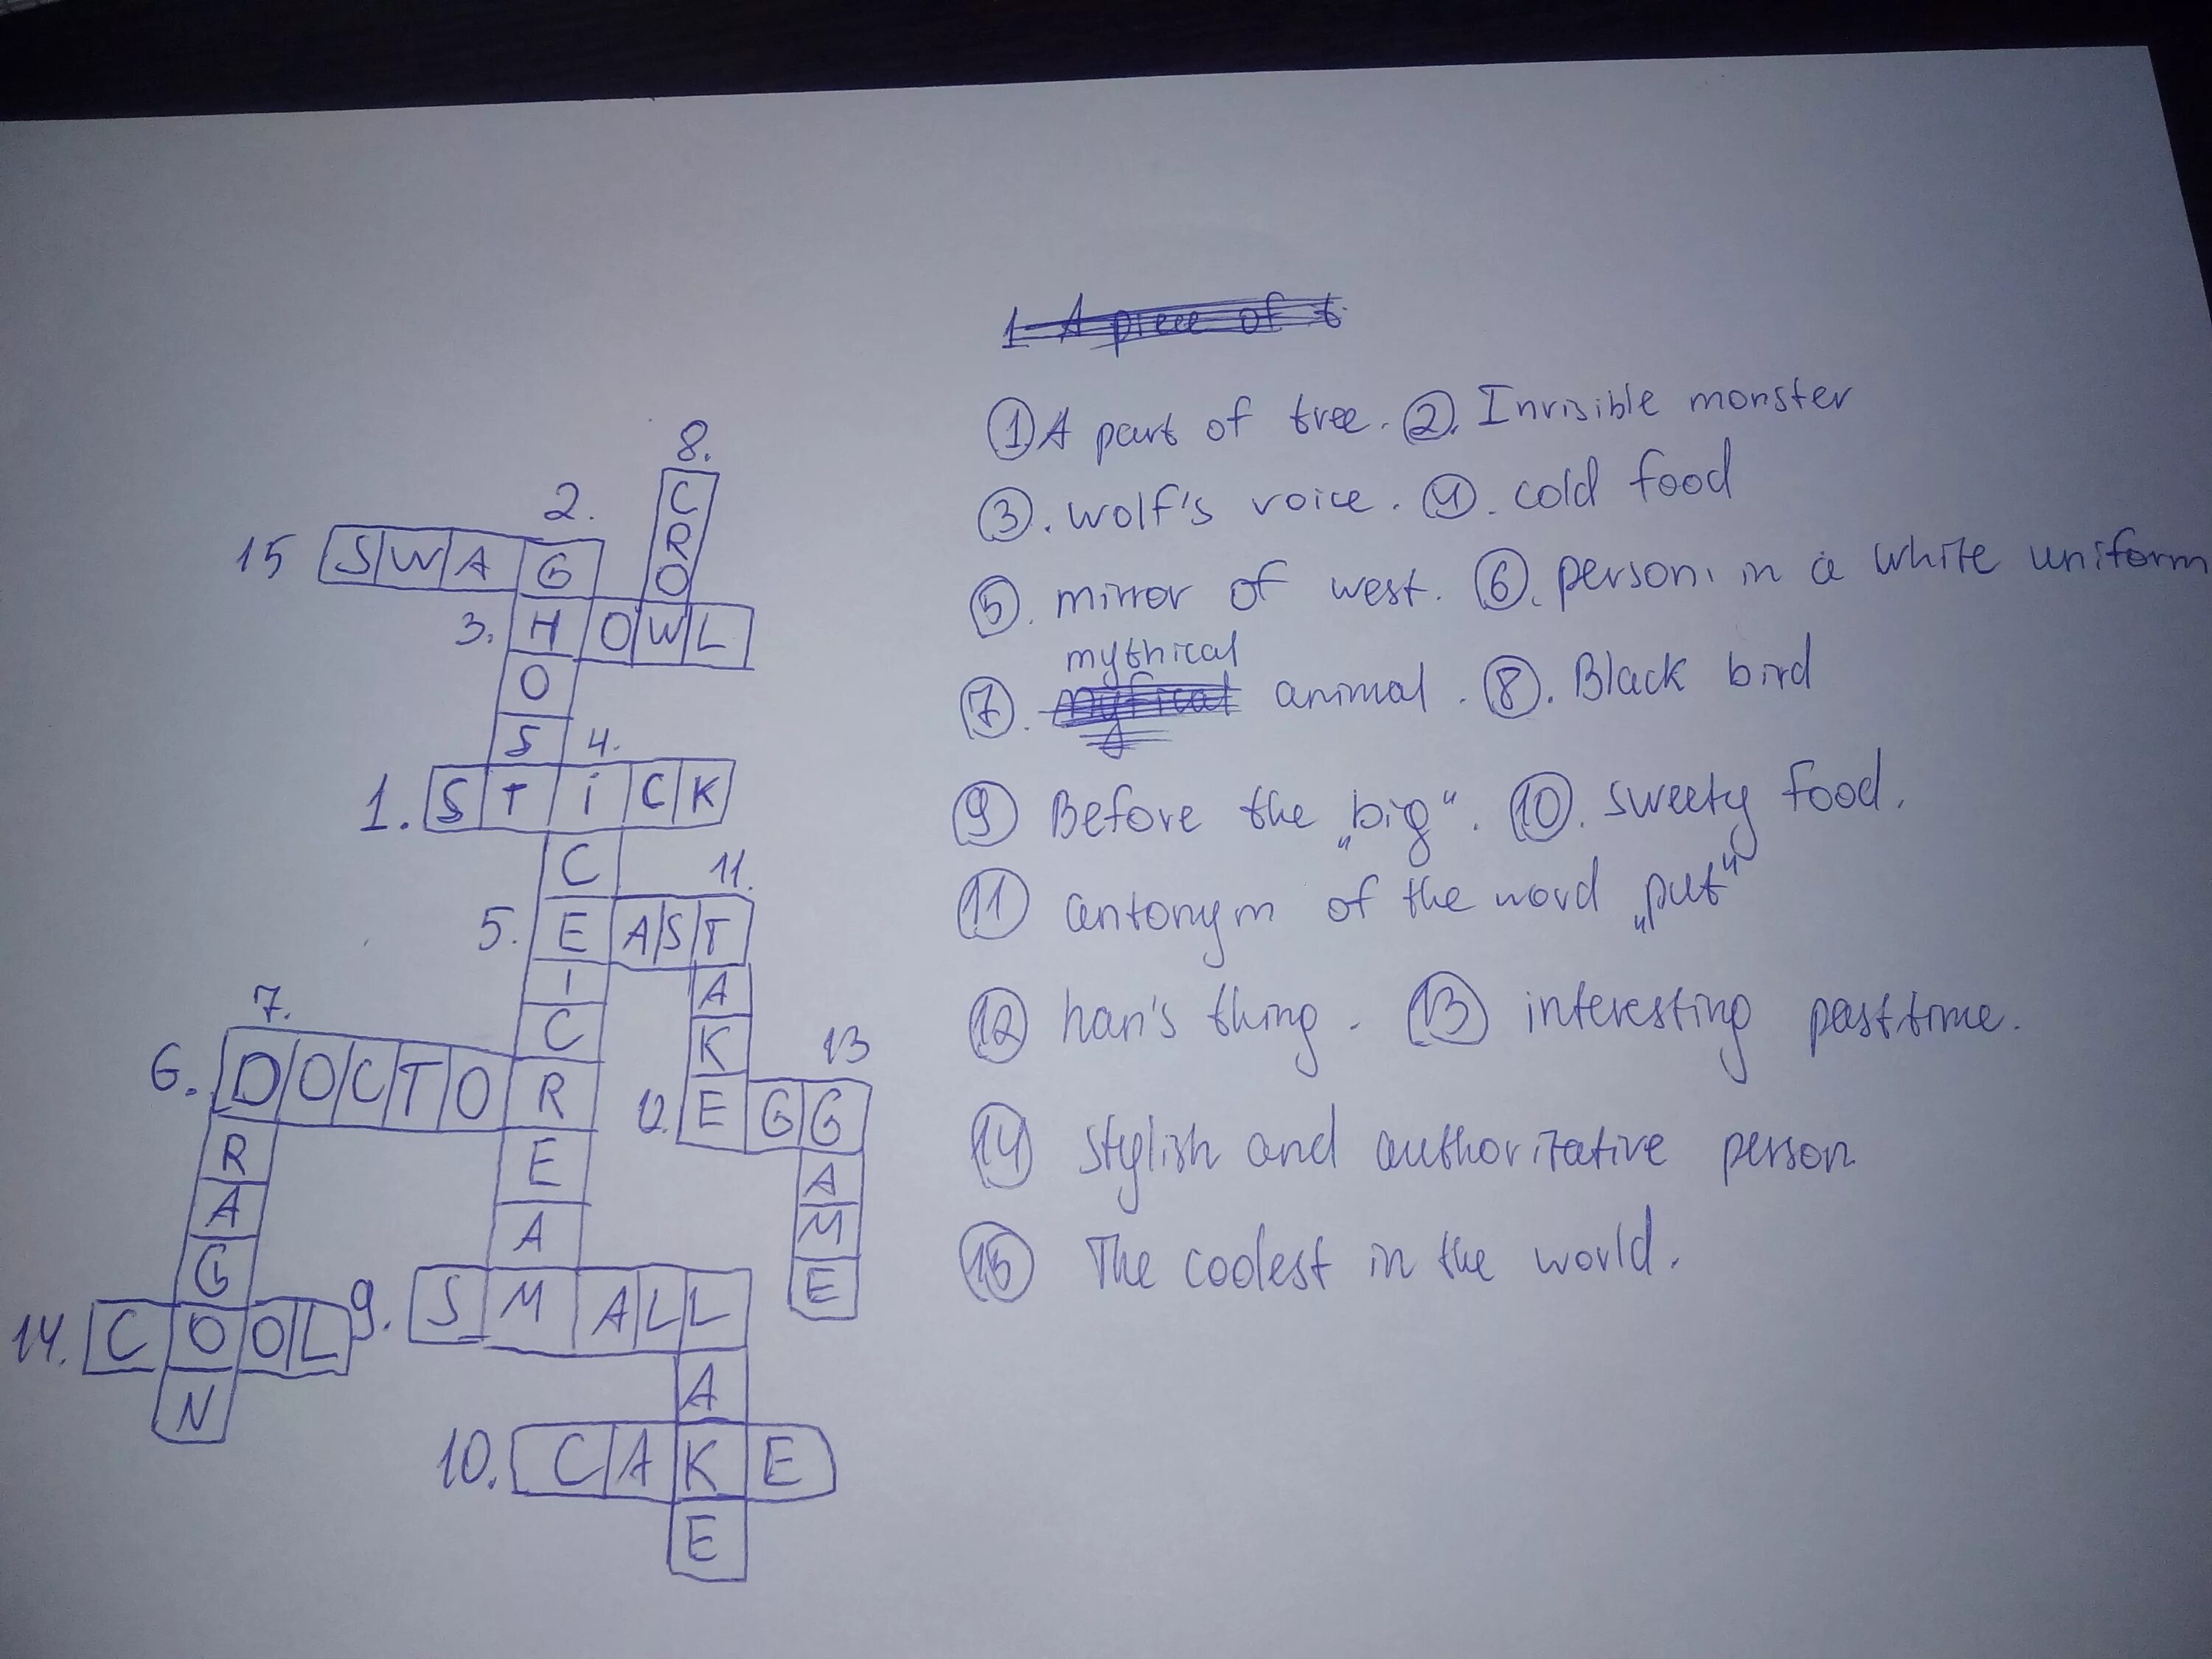 8.
2. C
R
15 SWAG O
3. HOWL
O
S 4.
1. STiCK
C 11.
5. EAST
I A
7. C K 13
6. DOCTOR 12. EGG
R E A
A A M
G E
14. COOL 9. SMALL
N A
10. CAKE
E
1 A piece of t
① A part of tree. ②. Invisible monster
③. wolf's voice. ④. cold food
⑤. mirror of west. ⑥. person in a white uniform
mythical
⑦. myfical animal. ⑧. Black bird
⑨ Before the „big“. ⑩. sweety food.
⑪ antonym of the word „put“
⑫ han's thing. ⑬ interesting pasttime.
⑭ stylish and authoritative person
⑮ The coolest in the world.